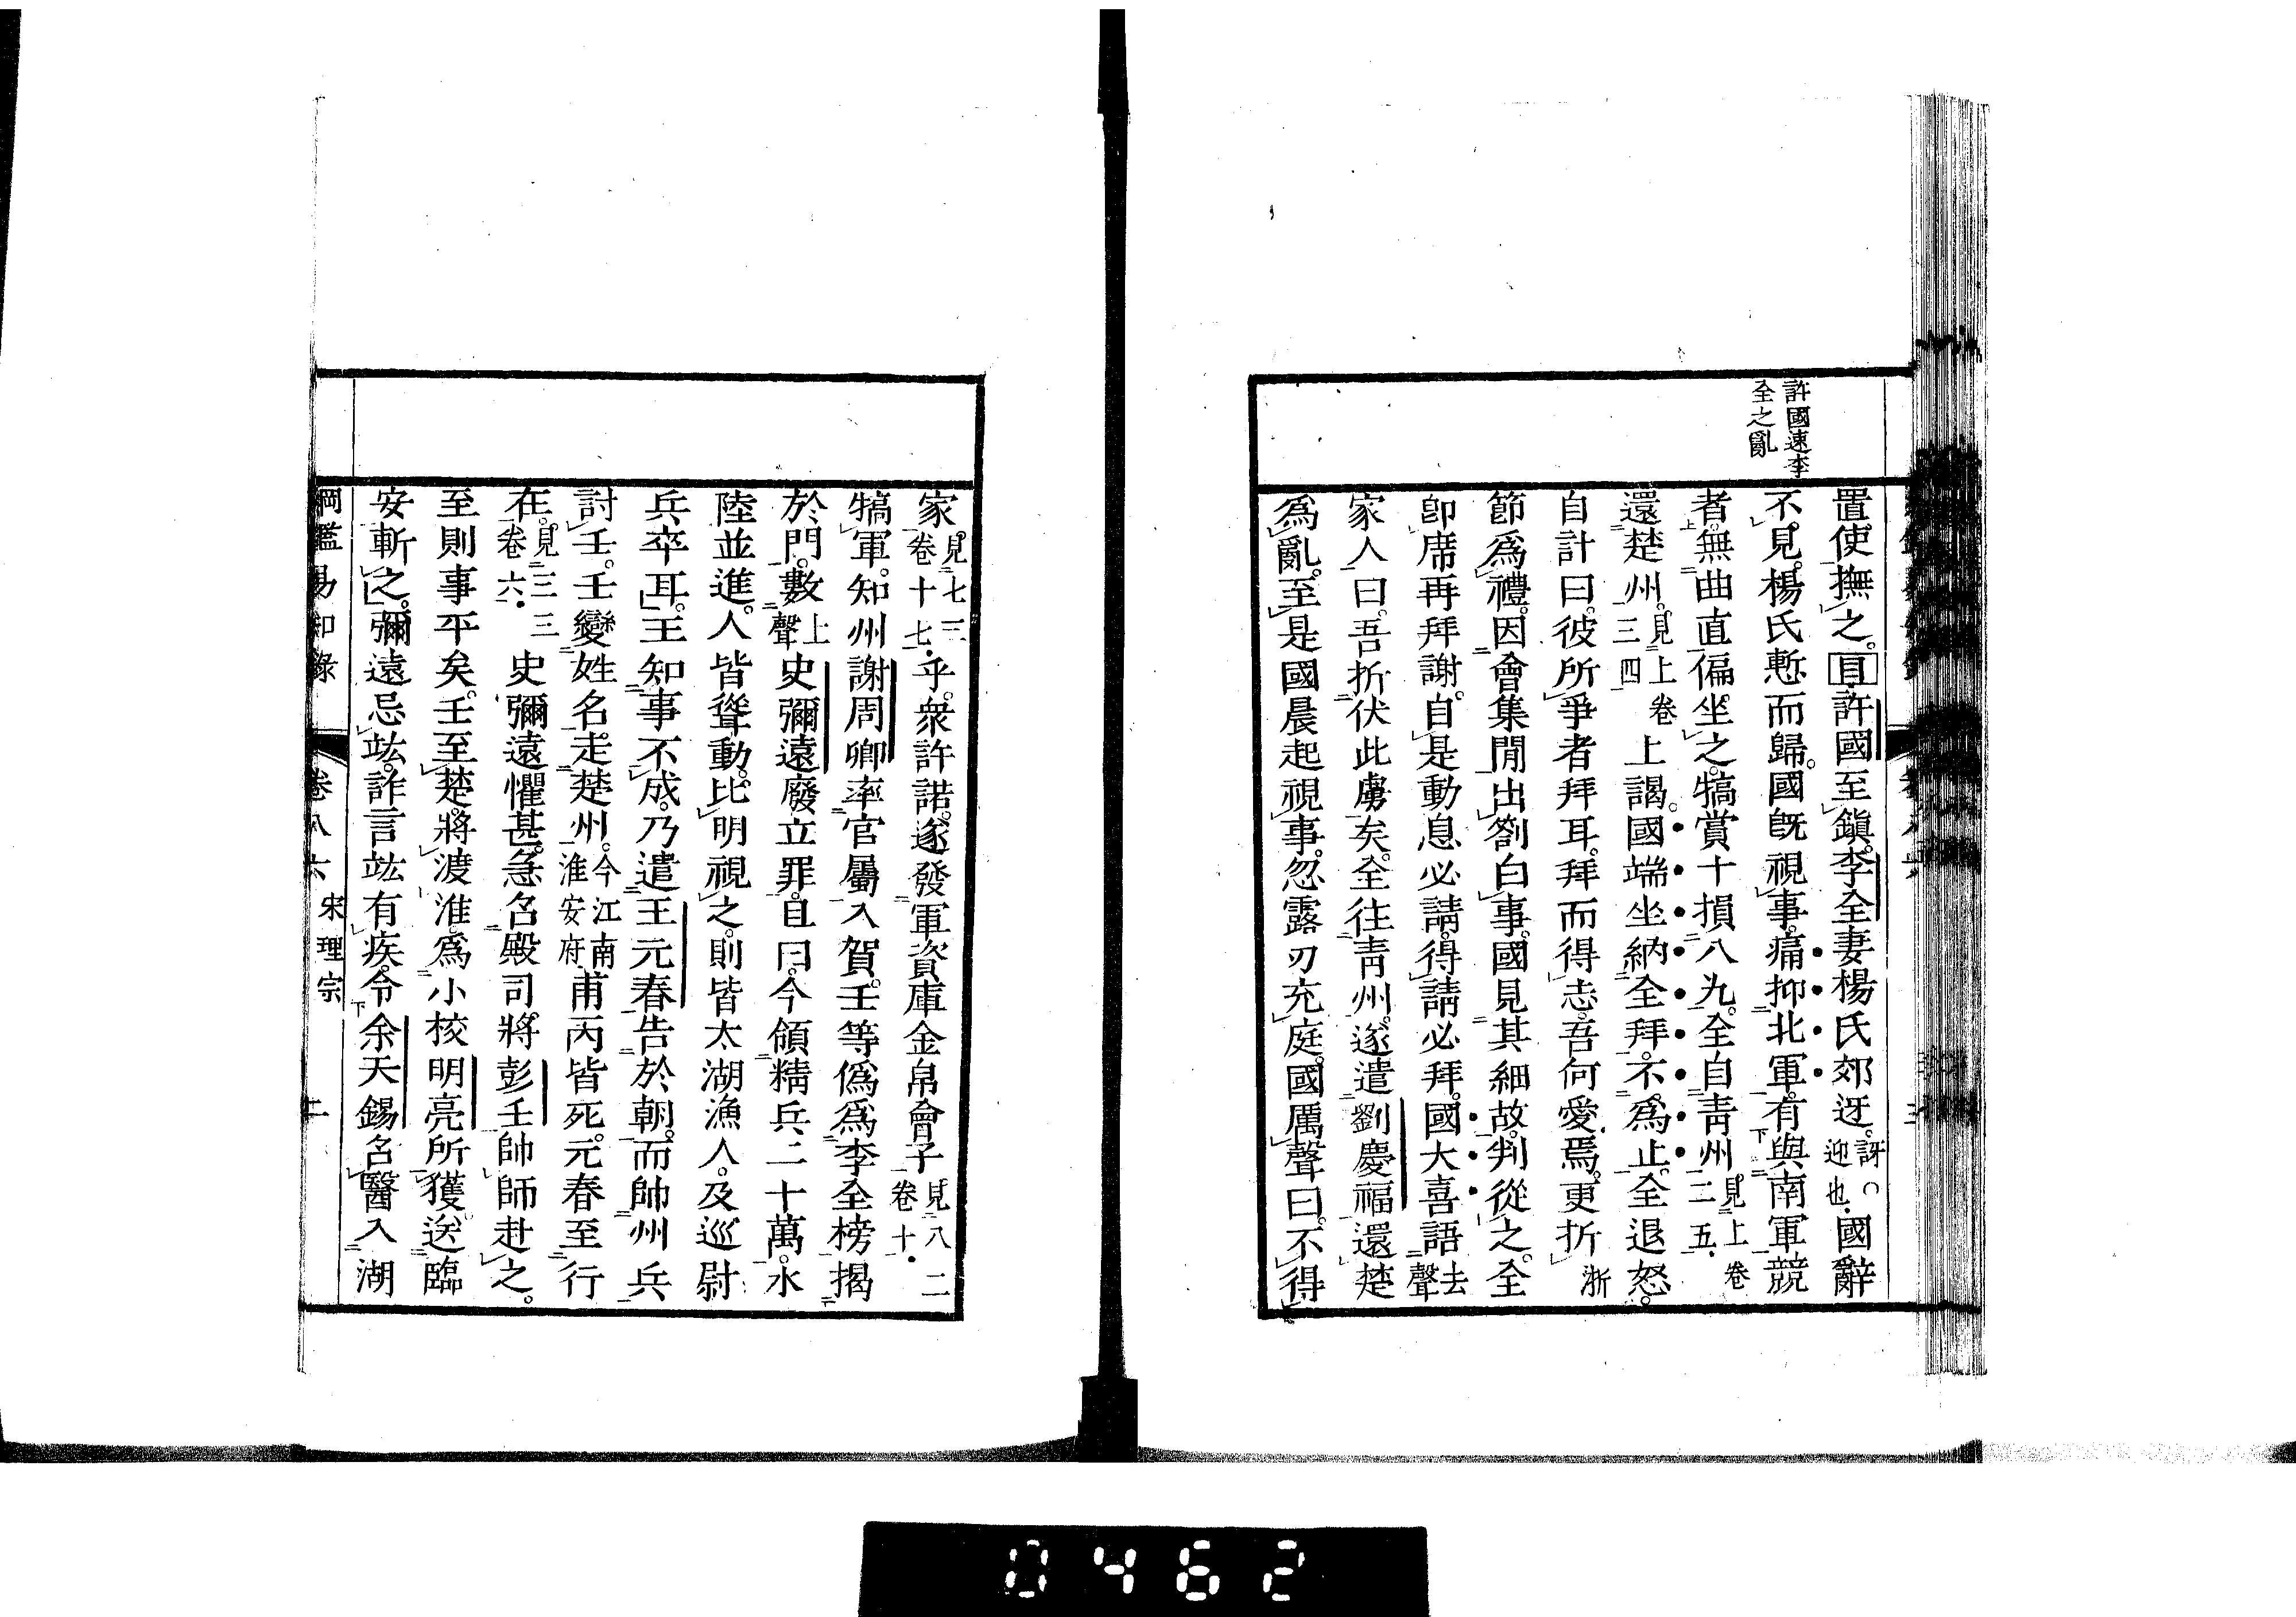 許國速李
全之亂
置使撫之。目許國至鎮。李全妻楊氏郊迓。訝〇迎也。國辭
不見。楊氏慙而歸。國既視事。痛抑北軍。有與南軍競
者。無曲直偏坐之。犒賞十損八九。全自青州見上卷二五。
還楚州。見上卷三四上謁。國端坐納全拜。不爲止。全退怒。
自計曰。彼所爭者拜耳。拜而得志。吾何愛焉。更折浙
節爲禮。因會集閒出劄白事。國見其細故。判從之。全
卽席再拜謝。自是動息必請。得請必拜。國大喜語去聲
家人曰。吾折伏此虜矣。全往青州。遂遣劉慶福還楚
爲亂。至是國晨起視事。忽露刃充庭。國厲聲曰。不得
家見七三卷十七。乎。衆許諾。遂發軍資庫金帛會子見八二卷十。
犒軍。知州謝周卿率官屬入賀。壬等僞爲李全榜揭
於門。數上聲史彌遠廢立罪。且曰。今領精兵二十萬。水
陸並進。人皆聳動。比明視之。則皆太湖漁人。及巡尉
兵卒耳。王知事不成。乃遣王元春告於朝。而帥州兵
討壬。壬變姓名。走楚州。今江南淮安府。甫丙皆死。元春至行
在。見三三卷六。史彌遠懼甚。急召殿司將彭壬帥師赴之。
至則事平矣。壬至楚。將渡淮。爲小校明亮所獲。送臨
安斬之。彌遠忌竑。詐言竑有疾。令余天錫召醫入湖
綱鑑易知錄 卷八六 宋理宗 二
0462